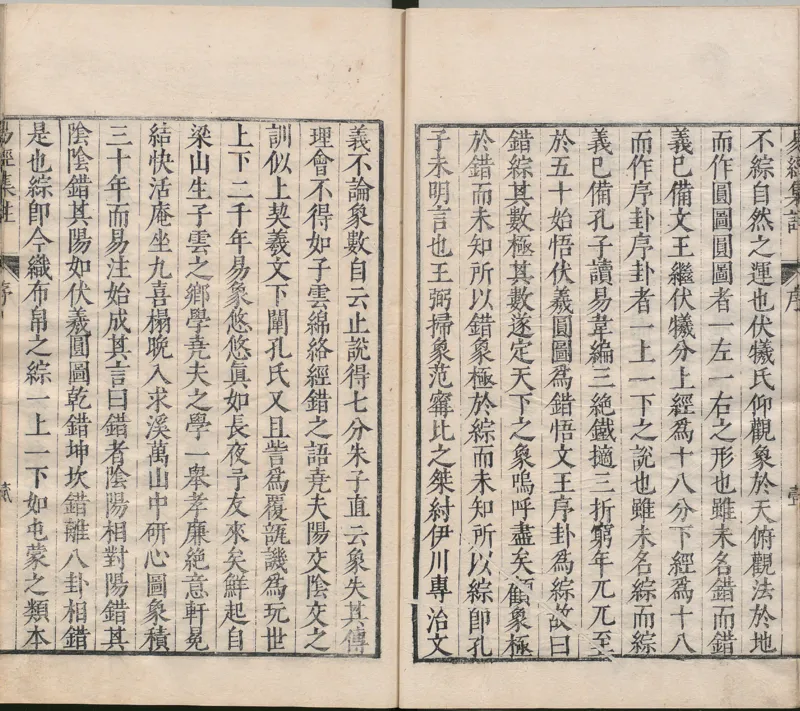 易經集註 序 壹
不綜自然之運也伏犧氏仰觀象於天俯觀法於地
而作圓圖圓圖者一左一右之形也雖未名錯而錯
義已備文王繼伏犧分上經爲十八分下經爲十八
而作序卦序卦者一上一下之說也雖未名綜而綜
義已備孔子讀易韋編三絶鐵擿三折窮年兀兀至
於五十始悟伏羲圓圖爲錯悟文王序卦爲綜故曰
錯綜其數極其數遂定天下之象嗚呼盡矣顧象極
於錯而未知所以錯象極於綜而未知所以綜卽孔
子未明言也王弼掃象范甯比之桀紂伊川專治文
義不論象數自云止說得七分朱子直云象失其傳
理會不得如子雲綿絡經錯之語堯夫陽交陰交之
訓似上契羲文下闡孔氏又且訾爲覆瓿譏爲玩世
上下二千年易象悠悠眞如長夜予友來矣鮮起自
梁山生子雲之鄉學堯夫之學一舉孝廉絶意軒冕
結快活庵坐九喜榻晩入求溪萬山中硏心圖象積
三十年而易注始成其言曰錯者陰陽相對陽錯其
陰陰錯其陽如伏羲圓圖乾錯坤坎錯離八卦相錯
是也綜卽今織布帛之綜一上一下如屯蒙之類本
易經集註 序 貳